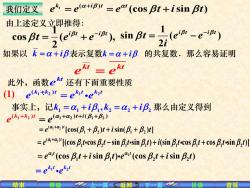 我们定义 e^{k_t} = e^{(α+iβ)t} = e^{αt}(cos βt + i sin βt)
由上述定义立即推得:
cos βt = \frac{1}{2}(e^{iβt} + e^{-iβt}), sin βt = \frac{1}{2i}(e^{iβt} - e^{-iβt})
如果以 \overline{k} = α - iβ 表示复数k = α + iβ 的共复数．那么容易证明
e^{\overline{k}t} = \overline{e^{kt}}
此外，函数e^{kt} 还有下面重要性质
(1) e^{(k_1+k_2)t} = e^{k_1t} • e^{k_2t}
事实上，记k_1 = α_1 + iβ_1, k_2 = α_2 + iβ_2 那么由定义得到
e^{(k_1+k_2)t} = e^{(α_1+α_2)t+i(β_1+β_2)t}
= e^{(α_1+α_2)t}[cos(β_1+β_2)t + i sin(β_1+β_2)t]
= e^{(α_1+α_2)t}[(cosβ_1t cosβ_2t - sinβ_1t sinβ_2t) + i(sinβ_1t cosβ_2t + cosβ_1t sinβ_2t)]
= e^{α_1t}(cos β_1t + i sin β_1t) • e^{α_2t}(cos β_2t + i sin β_2t)
= e^{k_1t} • e^{k_2t}